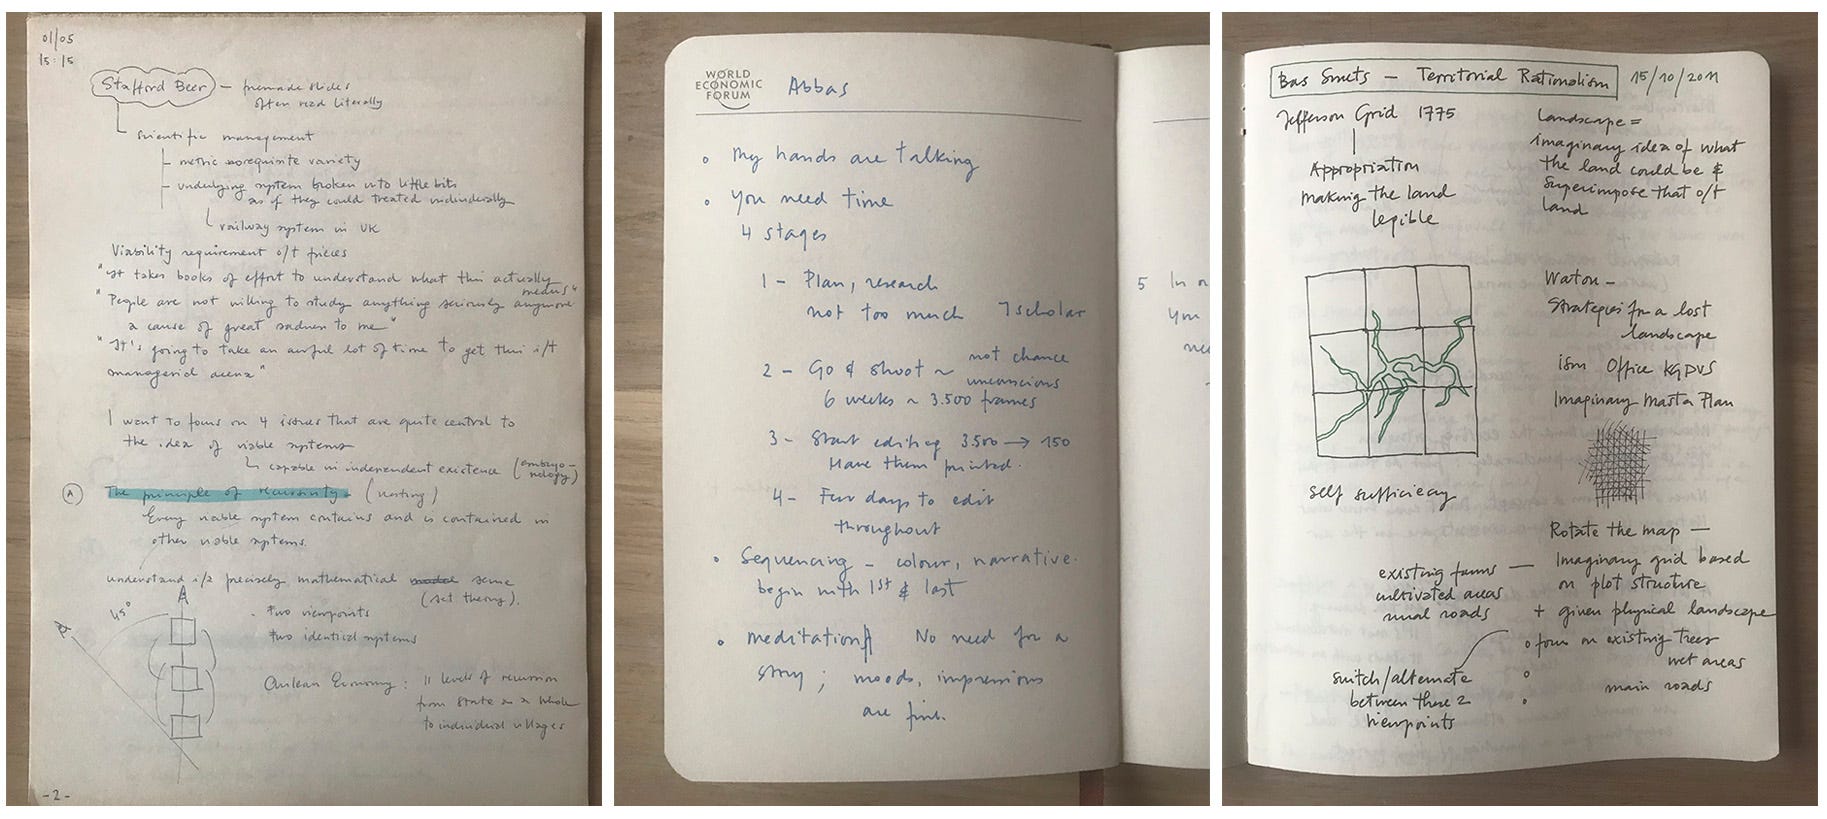 01/05
15:15
Stafford Beer – premade slides
often read literally
scientific management
metric requisite variety
underlying system broken into little bits
as if they could treated individually
railway system in UK
Viability requirement o/t pieces
"It takes books of effort to understand what this actually
means"
"People are not willing to study anything seriously anymore
a cause of great sadness to me"
"It's going to take an awful lot of time to get this i/t
managerial arena"
I want to focus on 4 issues that are quite central to
the idea of viable systems
capable in independent existence (embryo-
nology)
A The principle of recursivity (nesting)
Every viable system contains and is contained in
other viable systems.
understand i/a precisely mathematical model sense
(set theory).
45°
- two viewpoints
two identical systems
Chilean Economy: 11 levels of recursion
from state as a whole
to individual villages
-2-
WORLD
ECONOMIC
FORUM
Abbas
° My hands are talking
° You need time
4 stages
1 – Plan, research
not too much 7 scholar
2 – Go & shoot ~ not chance
unconscious
6 weeks ~ 3.500 frames
3 – Start editing 3500 → 150
Have them printed.
4 – Few days to edit
throughout
° Sequencing – colour, narrative.
begin with 1st & last
° meditation No need for a
story; moods, impressions
are fine.
5 In
you
Bas Smets – Territorial Rationalism 15/10/2011
Jefferson Grid 1775
Appropriation
making the land
legible
Landscape =
imaginary idea of what
the land could be &
superimpose that o/t
land
self sufficiecy
Watou –
Strategies for a lost
landscape
ism Office KGDVS
Imaginary Masta Plan
Rotate the map –
Imaginary grid based
on plot structure
+ given physical landscape
° focus on existing trees
wet areas
main roads
existing farms
cultivated areas
rural roads
switch/alternate
between these 2
viewpoints